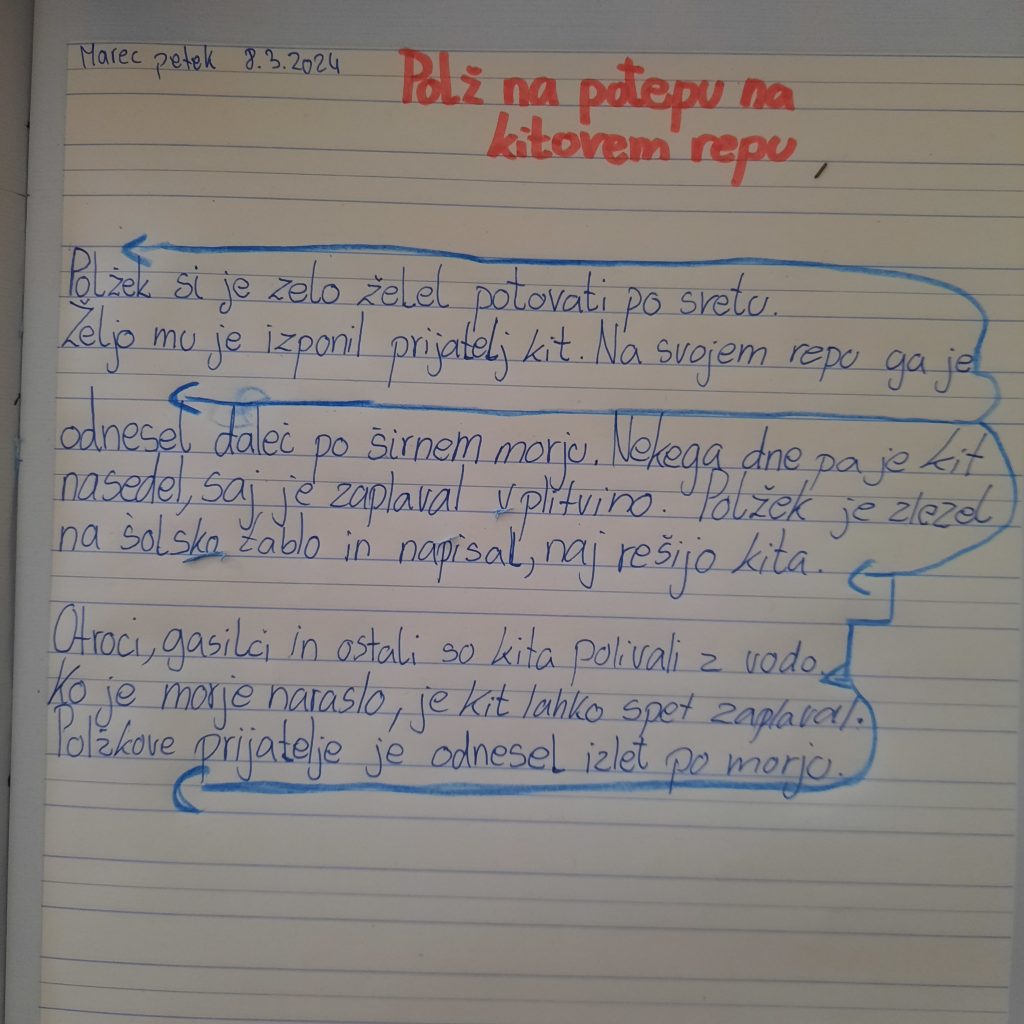 Marec petek 8.3.2024
Polž na potepu na
kitovem repu
Polžek si je zelo želel potovati po svetu.
Željo mu je izponil prijatelj kit. Na svojem repu ga je
odnesel daleč po širnem morju. Nekega dne pa je kit
nasedel, saj je zaplaval v plitvino. Polžek je zlezel
na šolsko tablo in napisal, naj rešijo kita.
Otroci, gasilci in ostali so kita polivali z vodo.
Ko je morje naraslo, je kit lahko spet zaplaval.
Polžkove prijatelje je odnesel izlet po morju.